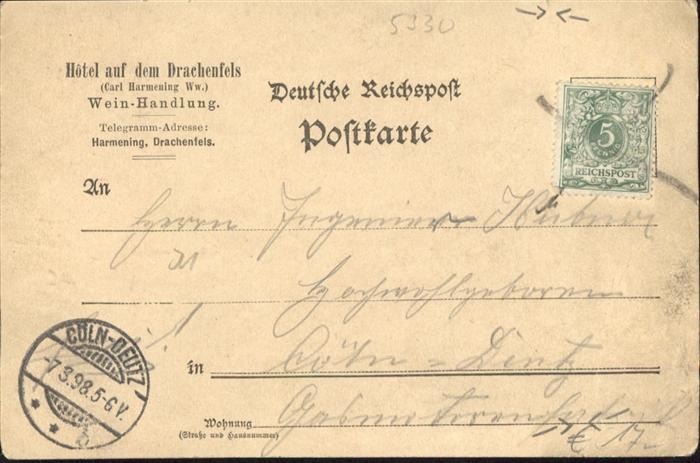 5330
Hôtel auf dem Drachenfels
(Carl Harmening Ww.)
Wein-Handlung.
Telegramm-Adresse:
Harmening, Drachenfels.
Deutsche Reichspost
Postkarte
5
REICHSPOST
An
Herrn Ingenieur
Hochwohlgeboren
in Cöln = Deutz
Wohnung
(Straße und Hausnummer)
CÖLN-DEUTZ
7 3.98.5-6 V.